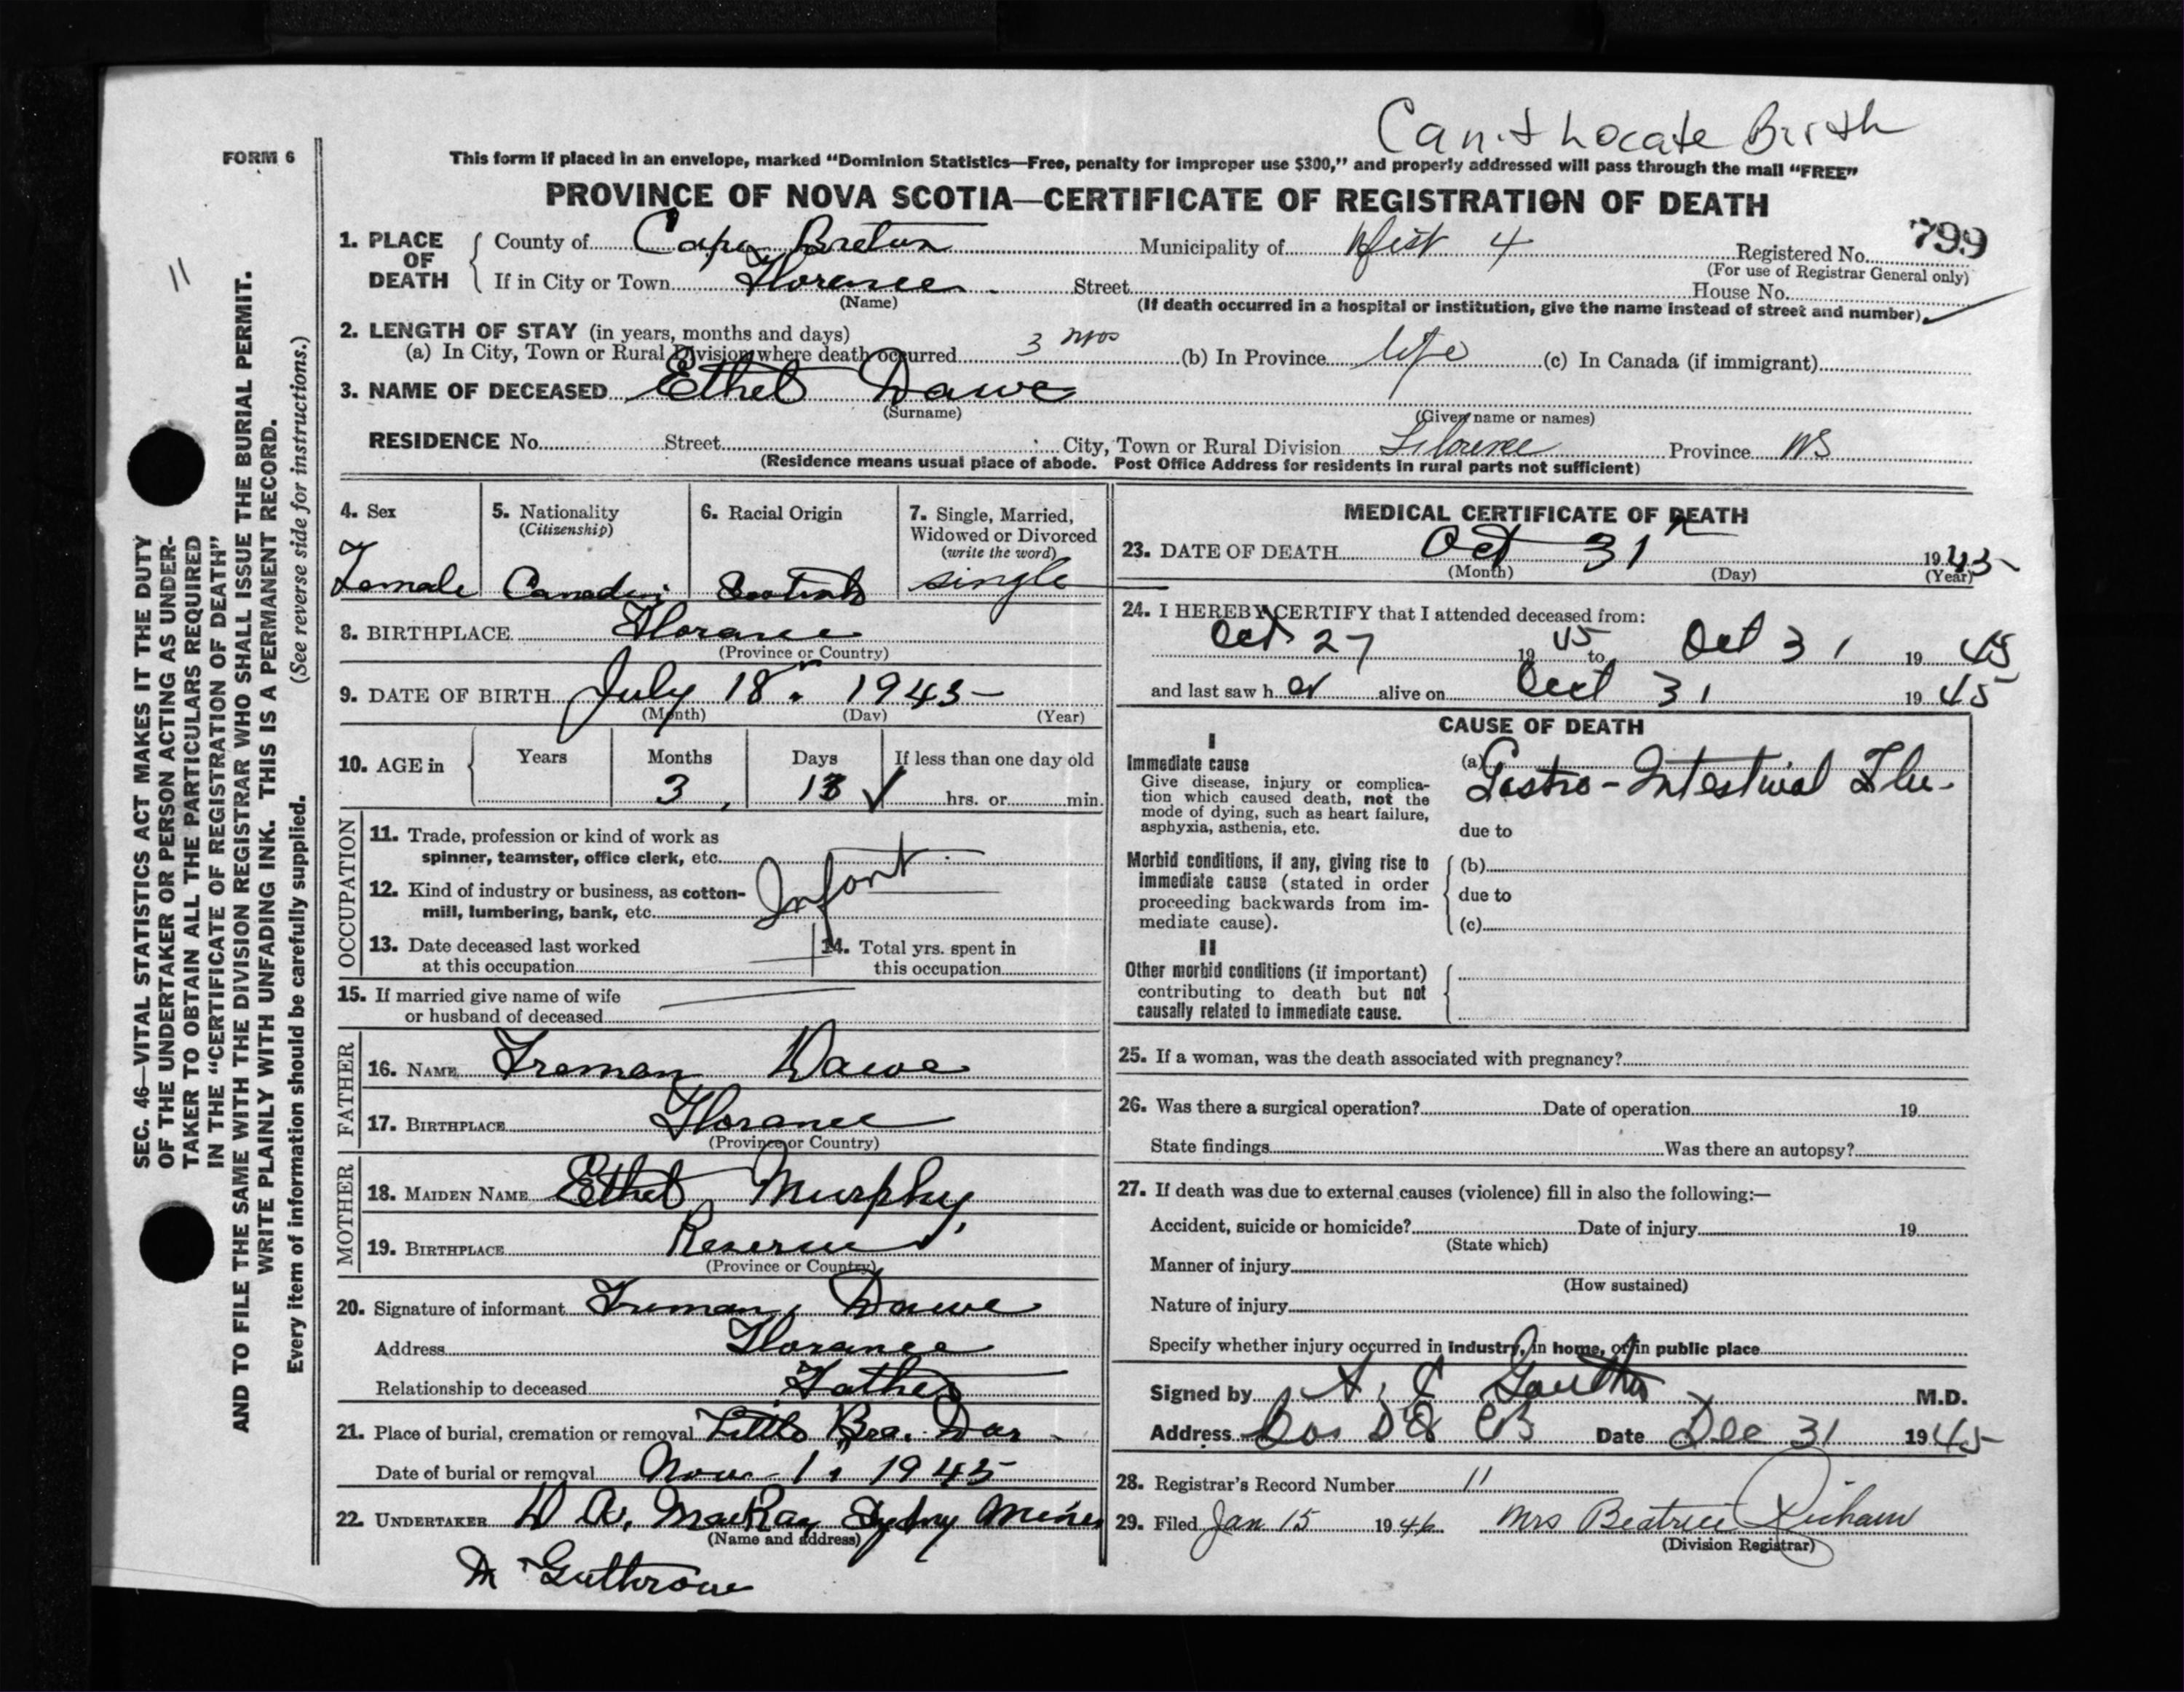 Can't Locate Birth
FORM 6
This form if placed in an envelope, marked "Dominion Statistics—Free, penalty for improper use $300," and properly addressed will pass through the mail "FREE"
PROVINCE OF NOVA SCOTIA—CERTIFICATE OF REGISTRATION OF DEATH
799
11
1. PLACE OF DEATH County of Cape Breton Municipality of Dist 4 Registered No.
(For use of Registrar General only)
If in City or Town Florence Street House No.
(Name) (If death occurred in a hospital or institution, give the name instead of street and number)
2. LENGTH OF STAY (in years, months and days)
(a) In City, Town or Rural Division where death occurred 3 mos (b) In Province life (c) In Canada (if immigrant)
3. NAME OF DECEASED Ethel Dawe
(Surname) (Given name or names)
RESIDENCE No. Street City, Town or Rural Division Florence Province NS
(Residence means usual place of abode. Post Office Address for residents in rural parts not sufficient)
4. Sex 5. Nationality (Citizenship) 6. Racial Origin 7. Single, Married, Widowed or Divorced (write the word)
Female single
8. BIRTHPLACE Florance
(Province or Country)
9. DATE OF BIRTH July 18 1945
(Month) (Day) (Year)
10. AGE in Years Months Days If less than one day old
3 13 hrs. or min.
OCCUPATION
11. Trade, profession or kind of work as
spinner, teamster, office clerk, etc.
Infant
12. Kind of industry or business, as cotton-
mill, lumbering, bank, etc.
13. Date deceased last worked
at this occupation
14. Total yrs. spent in
this occupation
15. If married give name of wife
or husband of deceased
FATHER
16. NAME Freman Dawe
17. BIRTHPLACE Florance
(Province or Country)
MOTHER
18. MAIDEN NAME Ethel Murphy
19. BIRTHPLACE Reserve
(Province or Country)
20. Signature of informant Truman Dawe
Address Florance
Relationship to deceased Father
21. Place of burial, cremation or removal Little Bra. Dor
Date of burial or removal Nov 1 1945
22. UNDERTAKER MacKay Sydney Mines
(Name and address)
Guthrow
MEDICAL CERTIFICATE OF DEATH
23. DATE OF DEATH Oct 31 1945
(Month) (Day) (Year)
24. I HEREBY CERTIFY that I attended deceased from:
Oct 27 1945 to Oct 31 1945
and last saw her alive on Oct 31 1945
CAUSE OF DEATH
I
Immediate cause
Give disease, injury or complica-
tion which caused death, not the
mode of dying, such as heart failure,
asphyxia, asthenia, etc.
(a) Gastro-Intestinal Flu.
due to
Morbid conditions, if any, giving rise to
immediate cause (stated in order
proceeding backwards from im-
mediate cause).
(b)
due to
(c)
II
Other morbid conditions (if important)
contributing to death but not
causally related to immediate cause.
25. If a woman, was the death associated with pregnancy?
26. Was there a surgical operation? Date of operation 19
State findings Was there an autopsy?
27. If death was due to external causes (violence) fill in also the following:—
Accident, suicide or homicide? Date of injury 19
(State which)
Manner of injury
(How sustained)
Nature of injury
Specify whether injury occurred in industry, in home, or in public place
Signed by M.D.
Address Date Dec 31 1945
28. Registrar's Record Number 11
29. Filed Jan 15 1946 Mrs Beatrice
(Division Registrar)
SEC. 46—VITAL STATISTICS ACT MAKES IT THE DUTY
OF THE UNDERTAKER OR PERSON ACTING AS UNDER-
TAKER TO OBTAIN ALL THE PARTICULARS REQUIRED
IN THE "CERTIFICATE OF REGISTRATION OF DEATH"
AND TO FILE THE SAME WITH THE DIVISION REGISTRAR WHO SHALL ISSUE THE BURIAL PERMIT.
WRITE PLAINLY WITH UNFADING INK. THIS IS A PERMANENT RECORD.
Every item of information should be carefully supplied. (See reverse side for instructions.)